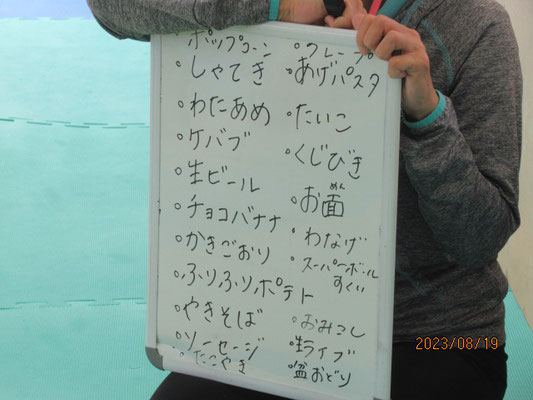 ・ポップコーン
・しゃてき
・わたあめ
・ケバブ
・生ビール
・チョコバナナ
・かきごおり
・ふりふりポテト
・やきそば
・ソーセージ
・たこやき
・クレープ
・あげパスタ
・たいこ
・くじびき
・お面
めん
・わなげ
・スーパーボール
すくい
・おみこし
・生ライブ
・盆おどり
2023/08/19